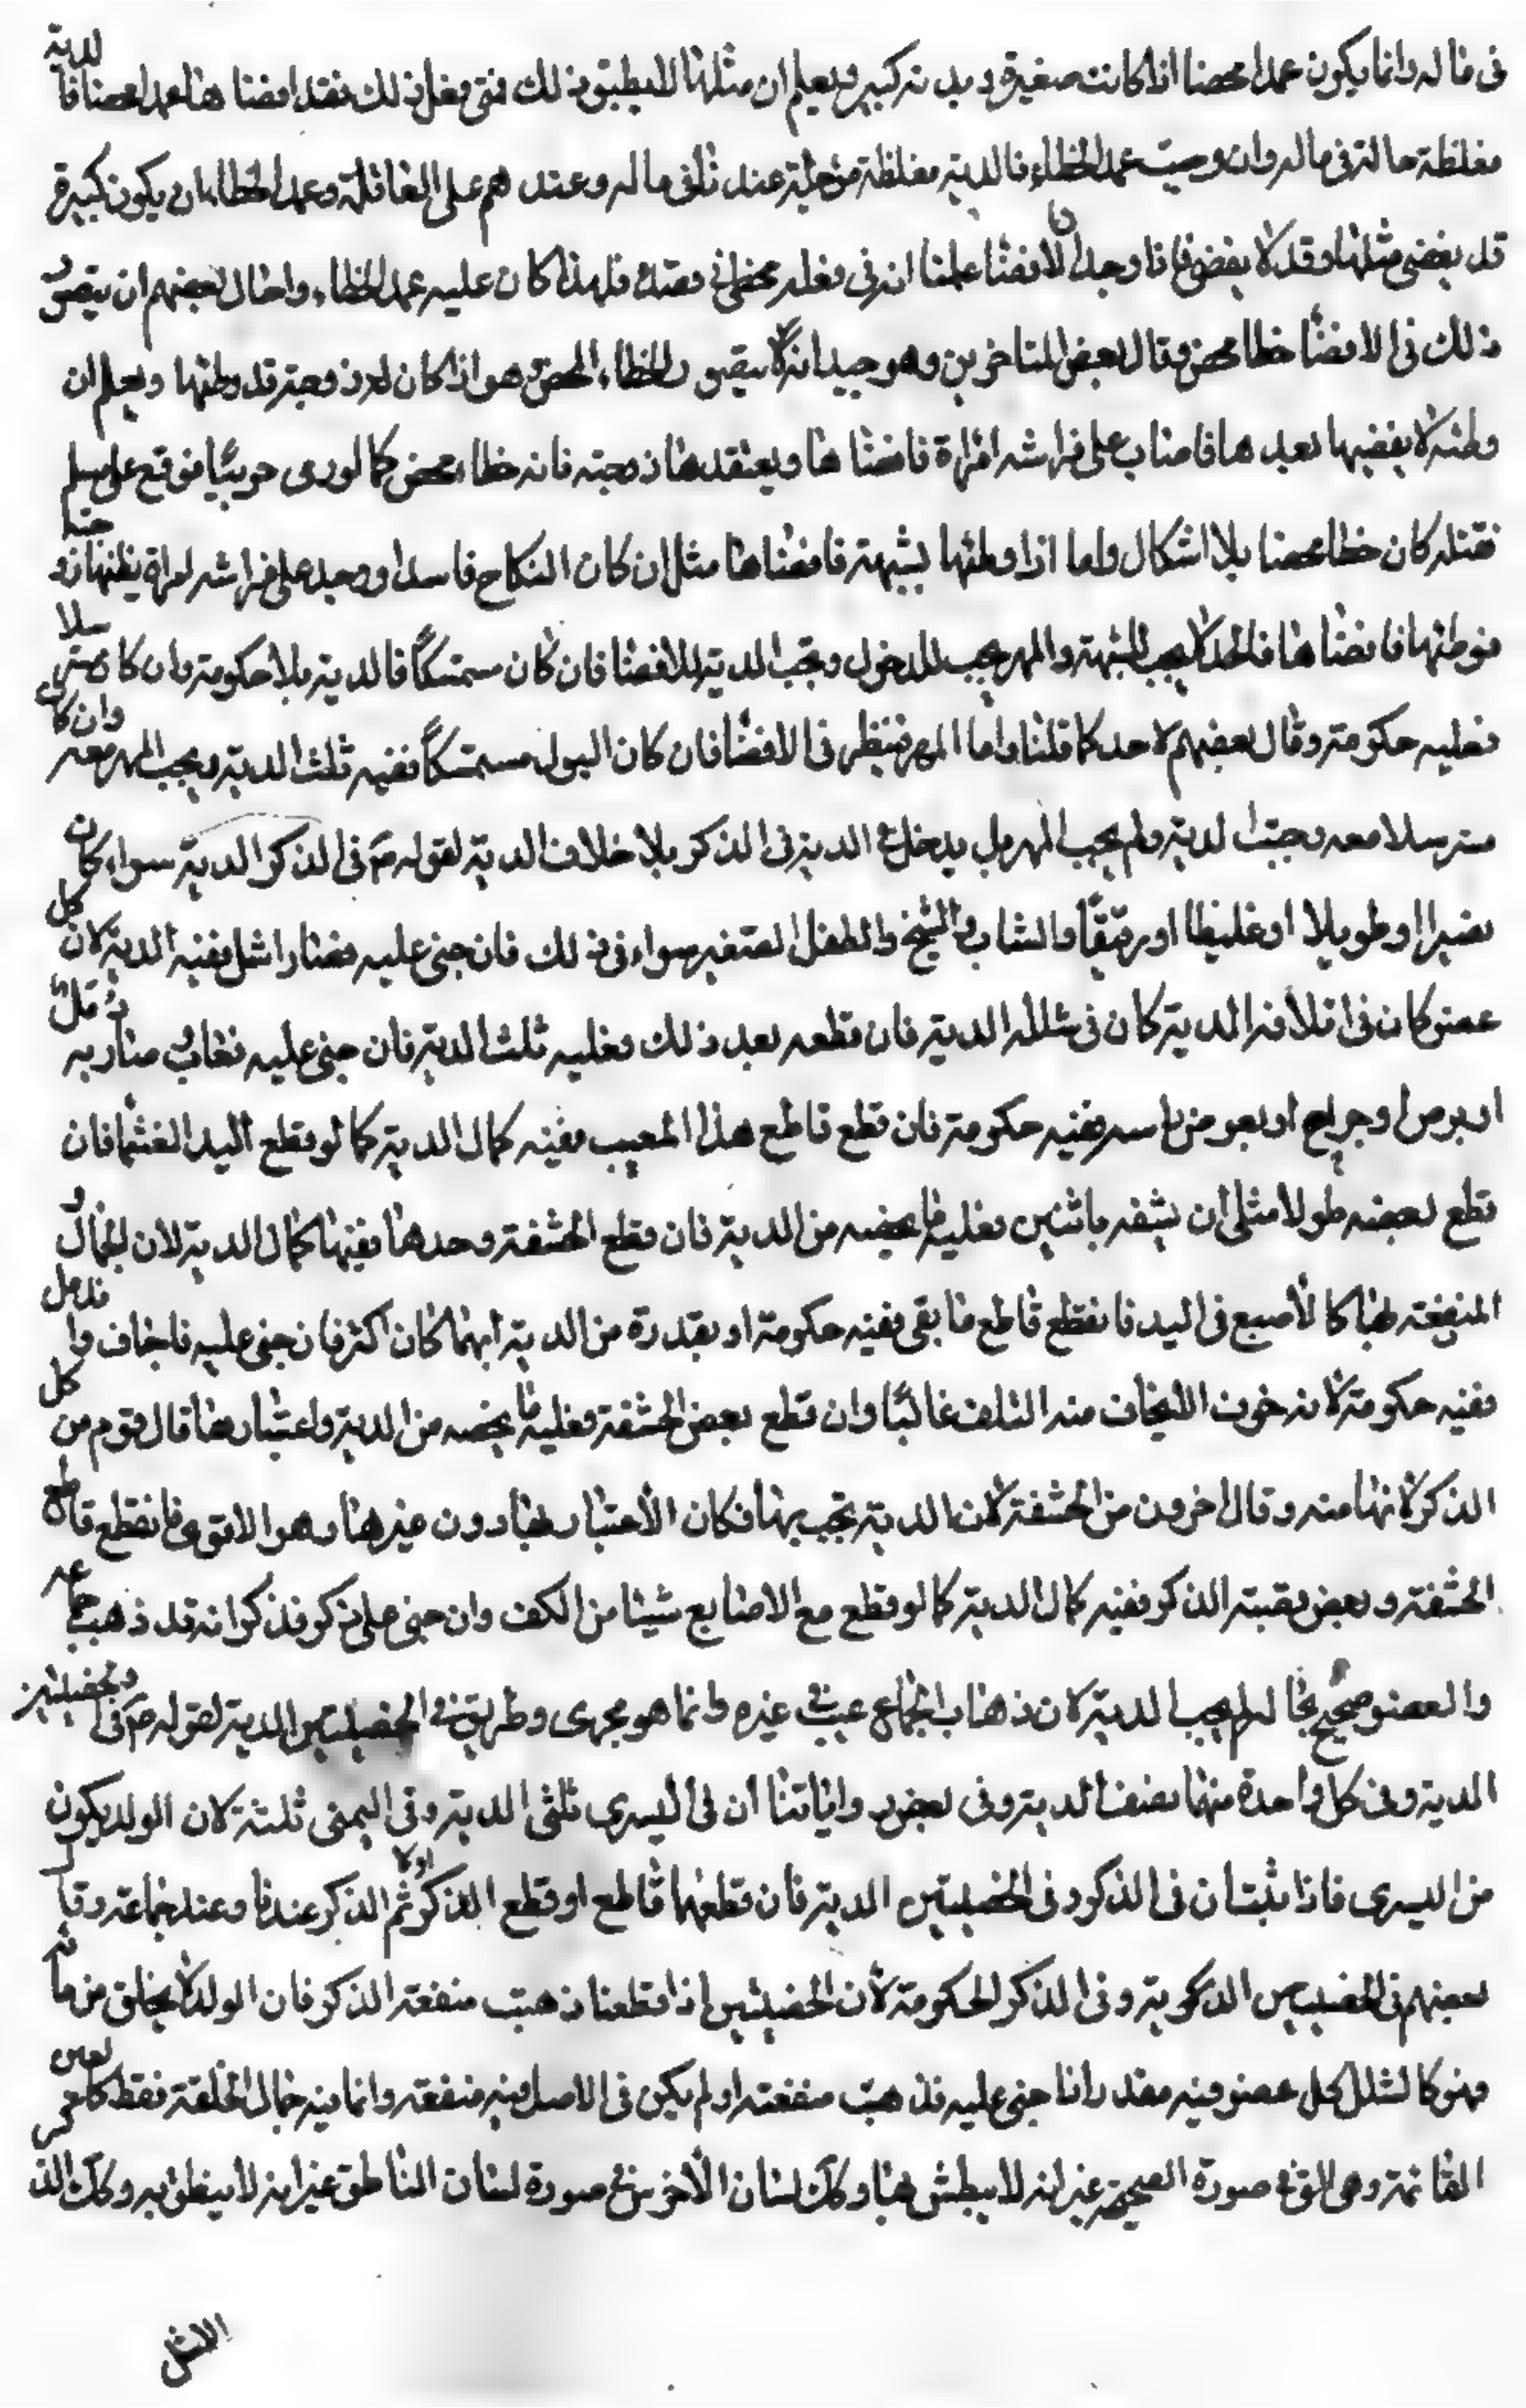 فى ماله وانما يكون عمدا محضا اذا كانت صغيرة وبدنه كبير ويعلم ان مثلها لا يطيق ذلك فمتى فعل ذلك فقد افضاها عمدا محضا فالدية
مغلظة حالة فى ماله وان وجبت عمد الخطاء فالدية مغلظة مؤجلة عندنا فى ماله وعندهم على العاقلة وعمد الخطاء ان يكون كبيرة
قد يفضى مثلها وقد لا يفضى فاذا وجدنا الافضا علمنا انه فى فعله مخطى فى قصده فلهذا كان عليه عمد الخطاء واحال بعضهم ان يتصور
ذلك فى الافضا خطا محض وقال بعض المتاخرين وهو جيد انه لا يتصور الخطاء المحض هو اذا كان له زوجة قد وطئها ويعلم ان
وطئه لا يفضيها بعدها فاصاب على فراشه امراة فافضاها ويعتقدها زوجته فانه خطاء محض كما لو رمى حربيا فوقع على مسلم
فقتله كان خطا محضا بلا اشكال واما اذا وطئها بشبهة فافضاها مثل ان كان النكاح فاسدا او وجد على فراشه امراة يظنها زوجته
فوطئها فافضاها فالحد لا يجب للشبهة والمهر يجب للدخول وتجب الدية للافضا فان كان مستمسكا فالدية بلا حكومة وان كان مسترسلا
فعليه حكومة وقال بعضهم لا حد كما قلنا واما المهر فينظر فى الافضا فان كان البول مستمسكا ففيه ثلث الدية ويجب المهر معه وان كان
مسترسلا معه وجبت الدية ولم يجب المهر بل يدخل فى الدية فى الذكر بلا خلاف الدية لقوله ع م فى الذكر الدية سواء كان
قصيرا او طويلا او غليظا او رقيقا والشاب والشيخ والطفل الصغير سواء فى ذلك فان جنى عليه فصار اشل ففيه الدية لان كل
عضو كان فى اتلافه الدية كان فى شلله الدية فان قطعه بعد ذلك فعليه ثلث الدية فان جنى عليه فعاب وصار به
او برص او جراح او بعوض راسه ففيه حكومة فان قطع قاطع هذا المعيب ففيه كمال الدية كما لو قطع اليد الغشما فان
قطع بعضه طولا مثل ان يشقه باثنين فعليه ما يخصه من الدية فان قطع الحشفة وحدها ففيها كمال الدية لان الجمال و
المنفعة بها كالاصبع فى اليد فان قطع قاطع ما بقى ففيه حكومة او بقدره من الدية ايهما كان اكثر فان جنى عليه فاجاف واندمل
ففيه حكومة لانه خوف لا يخاف منه التلف غالبا وان قطع بعض الحشفة فعليه ما يخصه من الدية واعتبارها قال قوم من كل
الذكر لانها منه وقال اخرون من الحشفة لان الدية تجب بها فكان الاعتبار بها دون غيرها وهو الاقوى فان قطع قاطع
الحشفة وبعض بقية الذكر ففيه كمال الدية كما لو قطع مع الاصابع شيئا من الكف وان جنى على ذكر فذكر انه قد ذهب جماعه
والعضو صحيح بحاله لم يجب الدية لان ذهاب الجماع عيب فى غيره وانما هو مجرى وطريق فى الخصيتين الدية لقوله ع م وفى الخصيتين
الدية وفى كل واحدة منهما نصف الدية وفى بعض رواياتنا ان فى اليسرى ثلثى الدية وفى اليمنى ثلثه لان الولد يكون
من اليسرى فاذا ثبت ان فى الذكر وفى الخصيتين الدية فان قطعهما قاطع او قطع الذكر اولا ثم الذكر عندنا وعند جماعة وقال
بعضهم فى الخصيتين الدية وفى الذكر الحكومة لان الخصيتين اذا قطعتا ذهبت منفعة الذكر فان الولد لا يخلق من مائه
فهو كالشلل كل عضو فيه مقدر اذا جنى عليه فذهبت منفعته او لم يكن فى الاصل فيه منفعة وانما فيه جمال الخلقة فقط كالعين
القائمة وهى التى فى صورة الصحيحة غير انه لا يبطش بها وكك لسان الاخرس فى صورة لسان الناطق غير انه لا ينطق به وكك الذكر
الاشل